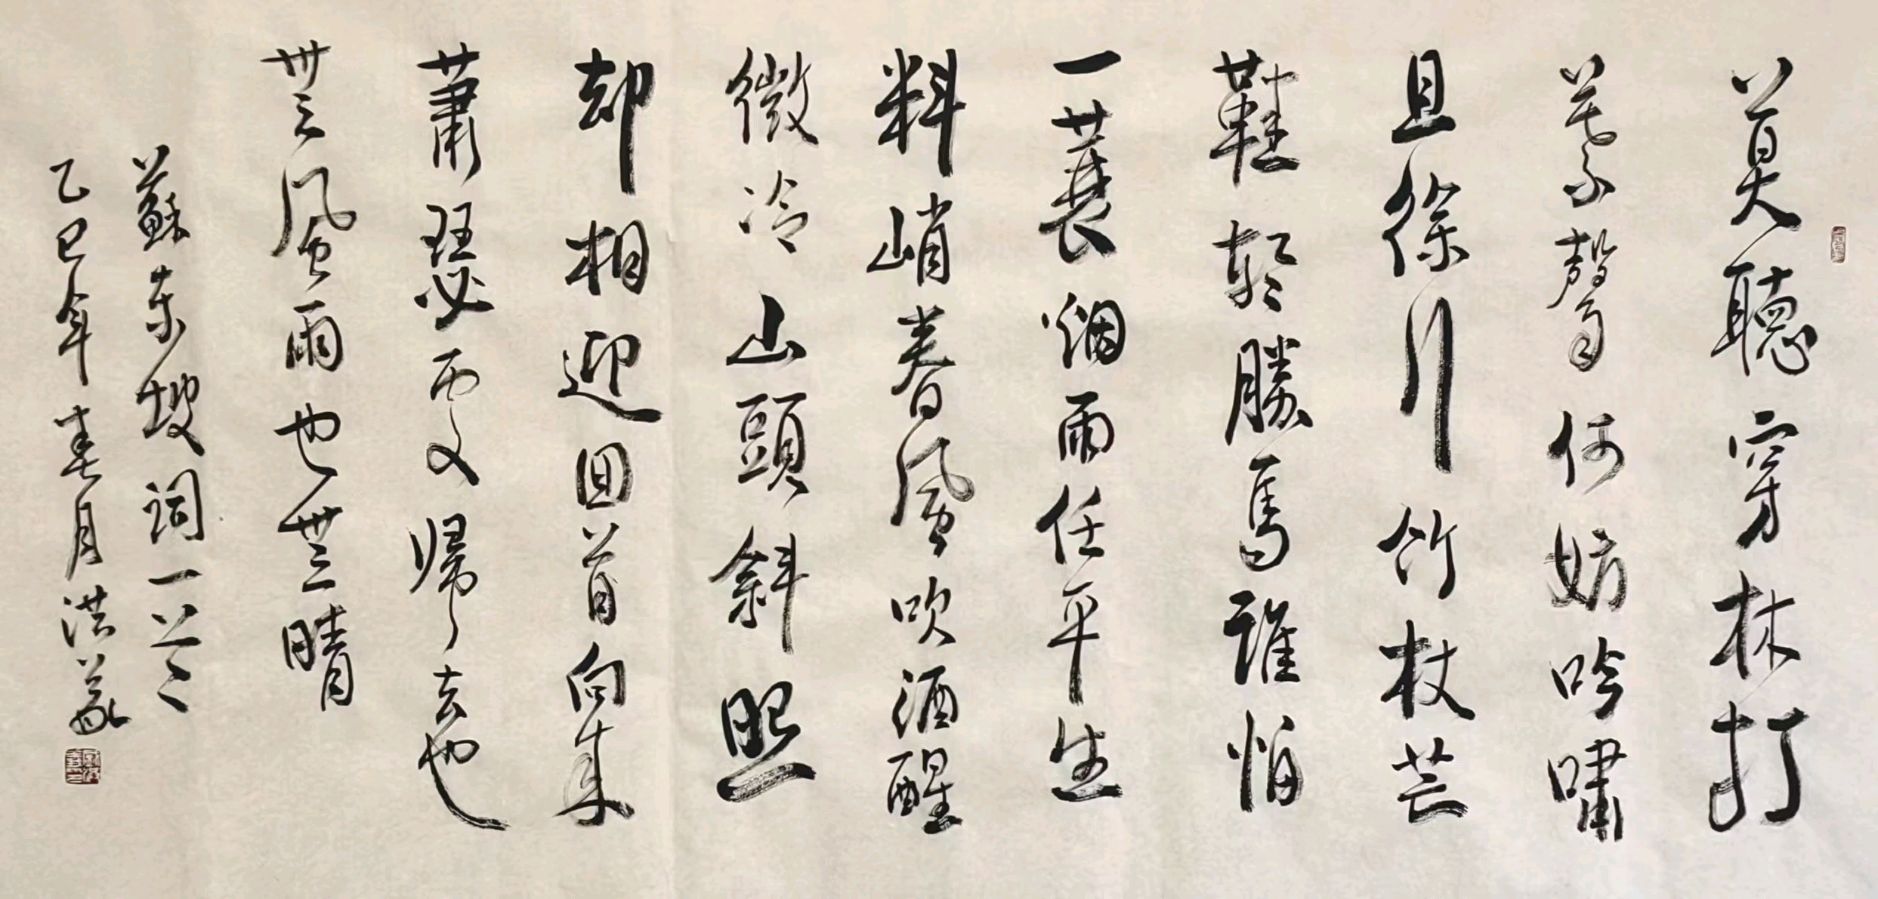 莫聽穿林打
葉聲何妨吟嘯
且徐行竹杖芒
鞋輕勝馬誰怕
一蓑烟雨任平生
料峭春風吹酒醒
微冷山頭斜照
却相迎回首向來
蕭瑟處歸去也
無風雨也無晴
蘇東坡詞一首
乙巳年春月洪義